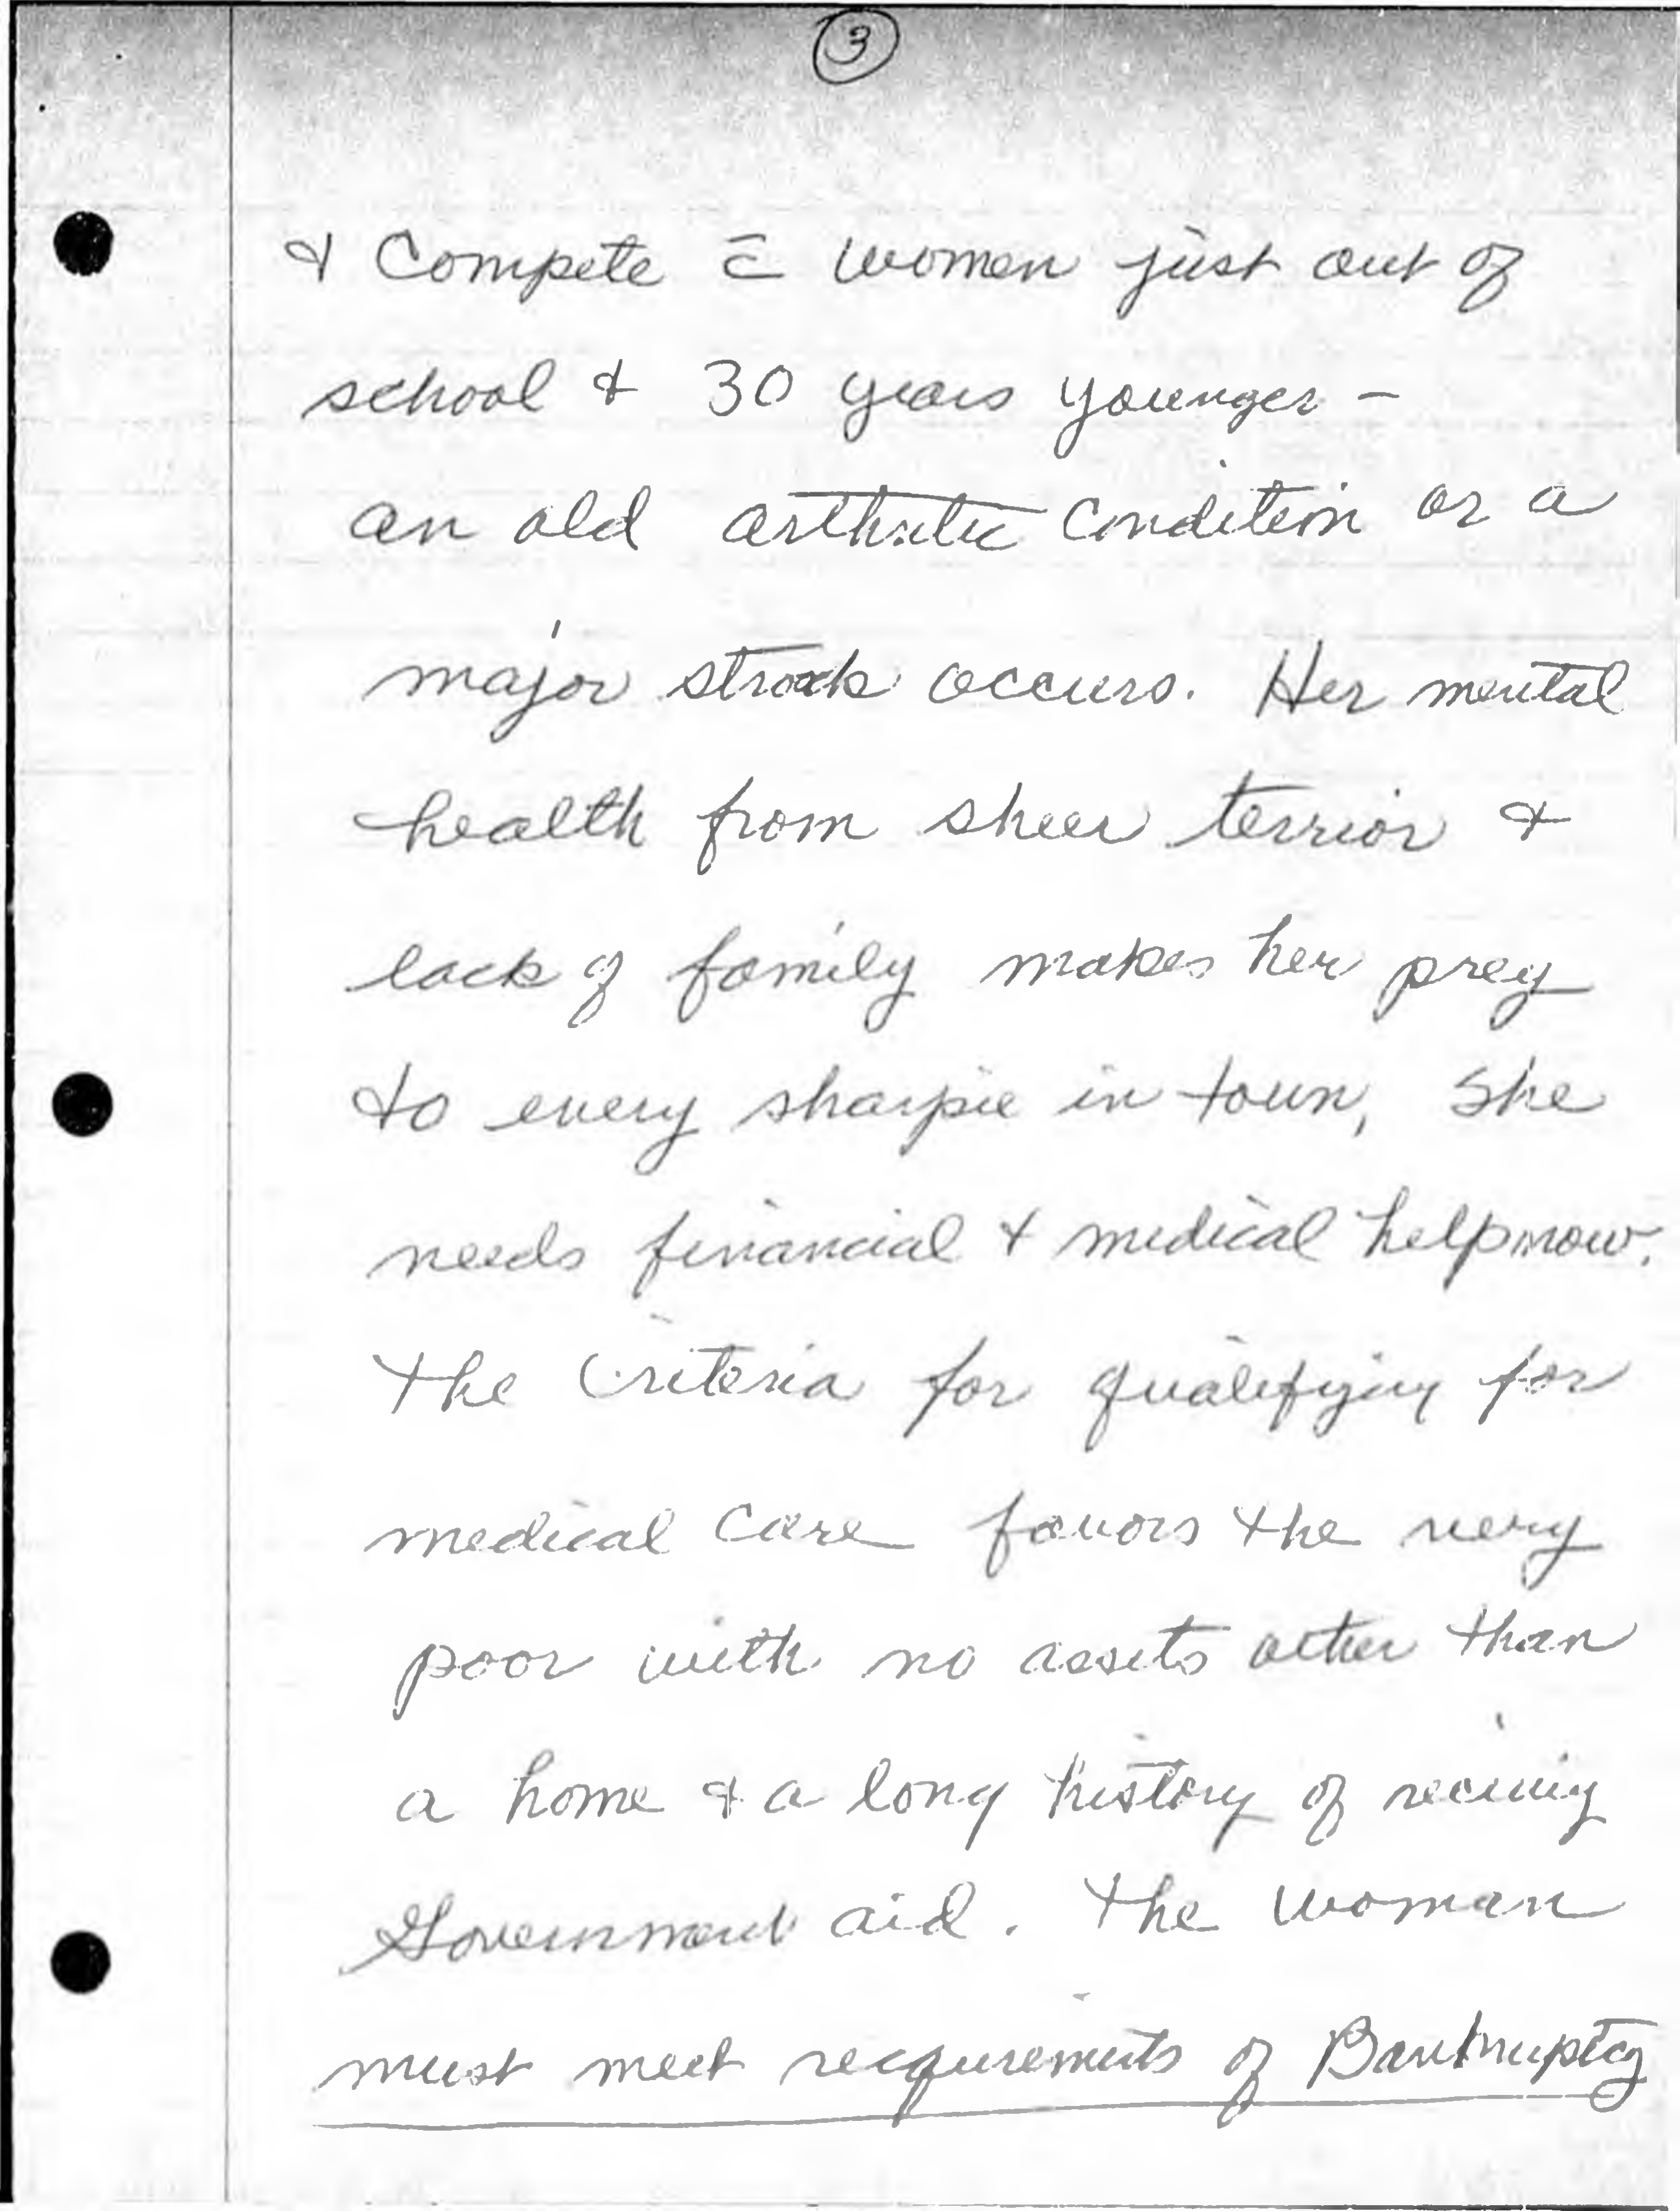 3
& Compete c̄ women just out of
school & 30 years younger –
an old arthritic condition or a
major stroak occurs. Her mental
health from sheer terrior &
lack of family makes her prey
to every sharpie in town, She
needs financial & medical help now.
The Criteria for qualifying for
medical care favors the very
poor with no assets other than
a home & a long history of receivig
Government aid. The woman
must meet requirements of Bankruptcy